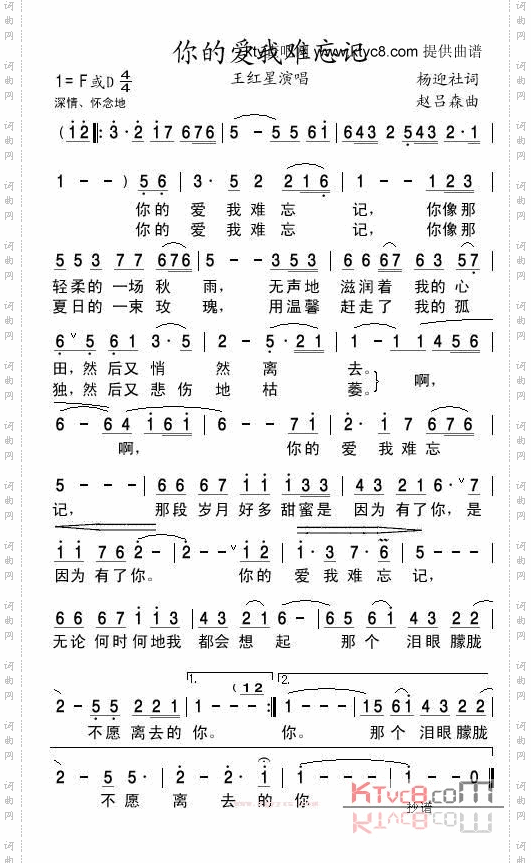 你的爱我难忘记
www.ktyc8.com 提供曲谱
1= F 或D 4/4
王红星演唱
杨迎社词
深情、怀念地
赵吕森曲
(1 2 ‖: 3· 2 1 7 6 7 6 | 5 - 5 5 6 1 | 6 4 3 5 4 3 2 |
1 - - ) 5 6 | 3· 5 2 2 1 6 | 1 - - 1 2 3 |
你的 爱 我难忘 记, 你像那
你的 爱 我难忘 记, 你像那
5 5 3 7 7 7 6 7 6 | 5 - - 3 5 3 | 6 6 6 6 3 5 7 |
轻柔的 一场 秋 雨, 无声地 滋润着 我的 心
夏日的 一束 玫 瑰, 用温馨 赶走了 我的 孤
6 5 6 1 3· 5 | 2 - 5 2· | 1 - 1 1 4 5 6 |
田,然 后又 悄 然 离 去。 啊,
独,然 后又 悲 伤 地 枯 萎。
6 - 6 4 1 6 1 | 6 - - 7 1 | 2· 1 7 6 7 6 |
啊, 你的 爱 我难忘
5 - - - | 6 6 6 7 1 1 1 3 1 | 4 3 2 1 6· 7 |
记, 那段 岁月 好多 甜蜜是 因为 有了 你, 是
1 1 7 6 2 - | 2 - - 1 2 | 1· 3 7· 6 | 5 - - - |
因为 有了 你。 你的 爱 我难忘 记,
6 6 6 7 1 1 3 | 4 3 2 3 1 | 3 5 6 1 4 3 2 2 |
无论 何时何地我 都会 想 起 那 个 泪眼 朦胧
1. 2.
2 - 5 5 2 2 1 | 1 - - - :‖ 1 - - - | 1 5 6 1 4 3 2 2 |
(1 2
不愿 离去的 你。 你。 那个 泪眼 朦胧
2 - 5 5 | 2 - 2 - 1 | 1 - - - | 1 - - 0 ‖
不愿 离 去 的 你
KTvc8.com
抄谱
词曲网